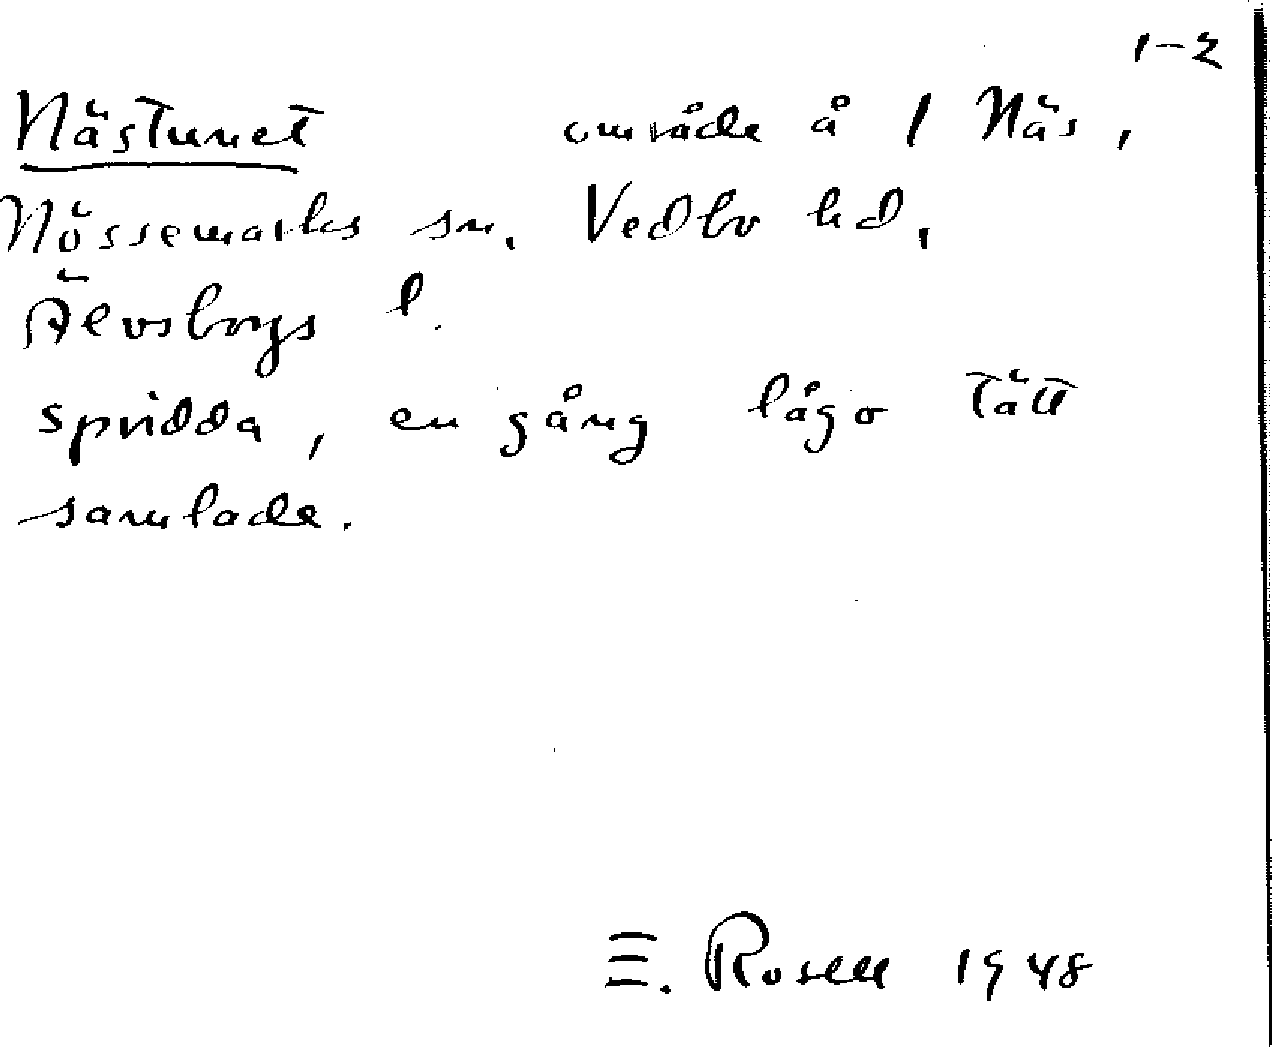 1-2
Nästunet område å 1 Näs,
Nössemarks sn. Vedbo hd,
Älvsborgs l.
spridda, en gång lågo tätt
samlade.
E. Rosell 1948